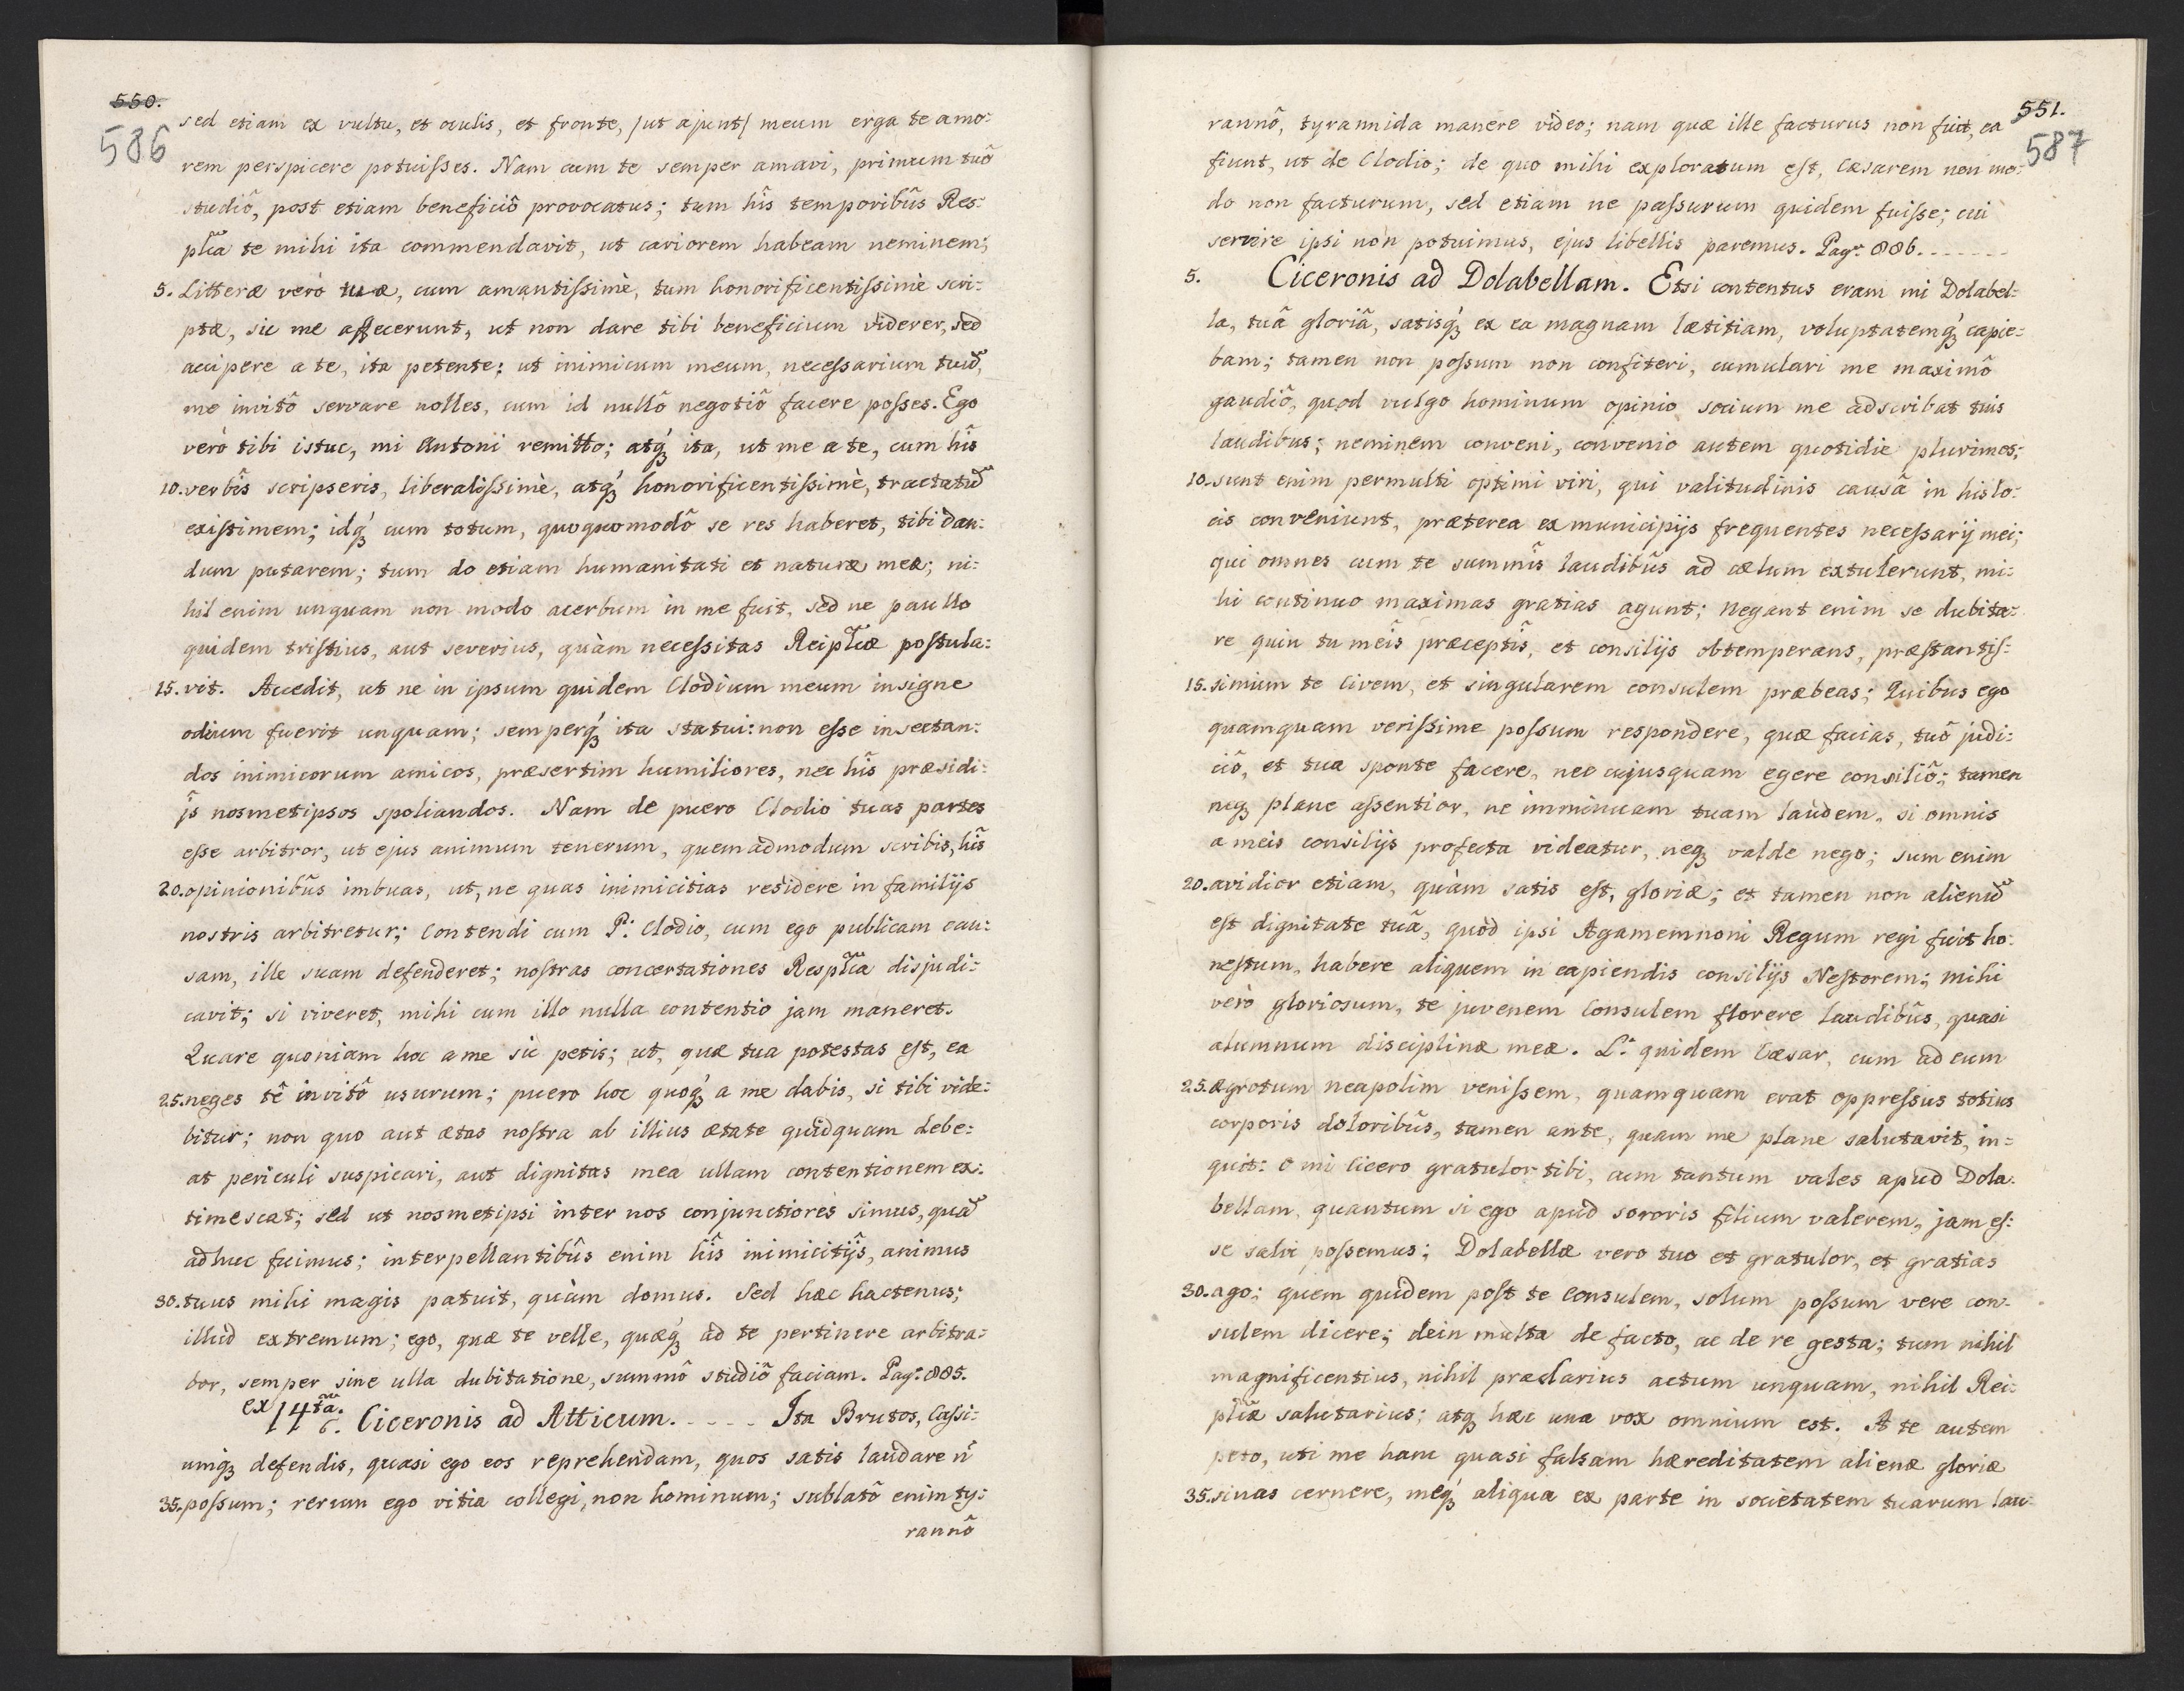 550.
586
sed etiam ex vultu, et oculis, et fronte, /ut ajunt/ meum erga te amo:
rem perspicere potuisses. Nam cum te semper amavi, primum tuô
studiô, post etiam beneficiô provocatus; tum hîs temporibûs Res:
plĩca te mihi ita commendavit, ut cariorem habeam neminem;
5. Litteræ verò tuæ, cum amantissimè, tum honorificentissimè scri:
ptæ, sic me affecerunt, ut non dare tibi beneficium viderer, sed
accipere a te, ita petente; ut inimicum meum, necessarium tuũ,
me invitô servare nolles, cum id nullô negotiô facere posses. Ego
verò tibi istuc, mi Antoni remitto; atq́ꝫ ita, ut me a te, cum hîs
10. verbîs scripseris, liberalissimè, atq́ꝫ honorificentissimè, tractatũ
existimem; idq́ꝫ cum totum, quoquomodô se res haberet, tibi dan:
dum putarem; tum do etiam humanitati et naturæ meæ; ni:
hil enim unquam non modo acerbum in me fuit, sed ne paullo
quidem tristius, aut severius, quàm necessitas Reiplĩcæ postula:
15. vit. Accedit, ut ne in ipsum quidem Clodium meum insigne
odium fuerit unquam; semperq́ꝫ ita statui: non esse insectan:
dos inimicorum amicos, præsertim humiliores, nec hîs præsidi:
ĳs nosmetipsos spoliandos. Nam de puero Clodio tuas partes
esse arbitror, ut ejus animum tenerum, quemadmodum scribis, hîs
20. opinionibûs imbuas, ut, ne quas inimicitias residere in familijs
nostris arbitretur; Contendi cum P: Clodio, cum ego publicam cau:
sam, ille suam defenderet; nostras concertationes Resplĩca disjudi:
cavit; si viveret, mihi cum illo nulla contentio jam maneret.
Quare quoniam hoc a me sic petis; ut, quæ tua potestas est, ea
25. neges tê invitô usurum; puero hoc quoq́ꝫ a me dabis, si tibi vide:
bitur; non quo aut ætas nostra ab illius ætate quidquam debe:
at periculi suspicari, aut dignitas mea ullam contentionem ex:
timescat; sed ut nosmetipsi inter nos conjunctiores simus, quã
adhuc fuimus; interpellantibûs enim hîs inimicitĳs, animus
30. tuus mihi magis patuit, quàm domus. Sed hæc hactenus;
illud extremum; ego, quæ te velle, quæq́ꝫ ad te pertinere arbitra:
bor, semper sine ulla dubitatione, summô studiô faciam. Pag: 885.
ex 14tâ. 6. Ciceronis ad Atticum. ..... Ita Brutos, Cassi:
umqꝫ defendis, quasi ego eos reprehendam, quos satis laudare ñ
35. possum; rerum ego vitia collegi, non hominum; sublatô enim ty:
rannô
551.
587
rannô, tyrannida manere video; nam quæ ille facturus non fuit, ea
fiunt, ut de Clodio; de quo mihi exploratum est, Cæsarem non mo:
do non facturum, sed etiam ne passurum quidem fuisse; cui
servire ipsi non potuimus, ejus libellis paremus. Pag: 886. .......
5. Ciceronis ad Dolabellam. Etsi contentus eram mi Dolabel:
la, tuâ gloriâ, satisq́ꝫ ex ea magnam lætitiam, voluptatemq́ꝫ capie:
bam; tamen non possum non confiteri, cumulari me maximô
gaudiô, quod vulgo hominum opinio socium me adscribat tuis
laudibus; neminem conveni, convenio autem quotidie plurimos;
10. sunt enim permulti optimi viri, qui valitudinis causâ in his lo:
cis conveniunt, præterea ex municipijs frequentes necessarij mei;
qui omnes cum te summîs laudibûs ad cælum extulerunt, mi:
hi continuo maximas gratias agunt; negant enim se dubita:
re quin tu meîs præceptîs, et consilijs obtemperans, præstantis:
15. simum te Civem, et singularem consulem præbeas; Quibus ego
quamquam verissime possum respondere, quæ facias, tuô judi:
ciô, et tua sponte facere, nec cujusquam egere consiliô; tamen
neqꝫ plane assentior, ne imminuam tuam laudem, si omnis
a meis consilijs profecta videatur, neqꝫ valde nego; sum enim
20. avidior etiam, quàm satis est, gloriæ; et tamen non alienũ
est dignitate tuâ, quòd ipsi Agamemnoni Regum regi fuit ho:
nestum, habere aliquem in capiendis consilijs Nestorem; mihi
verò gloriosum, te juvenem Consulem florere laudibûs, quasi
alumnum disciplinæ meæ. L: quidem Cæsar, cum ad eum
25. ægrotum neapolim venissem, quamquam erat oppressus totius
corporis doloribûs, tamen ante, quam me plane salutavit, in=
quit: O mi Cicero gratulor tibi, cum tantum vales apud Dola:
bellam, quantum si ego apud sororis filium valerem, jam es:
se salvi possemus; Dolabellæ vero tuo et gratulor, et gratias
30. ago; quem quidem post te Consulem, solum possum vere con:
sulem dicere; dein multa de facto, ac de re gesta; tum nihil
magnificentius, nihil præclarius actum unquam, nihil Rei:
plĩcæ salutarius; atqꝫ hæc una vox omnium est. A te autem
peto, uti me hanc quasi falsam hæreditatem alienæ gloriæ
35. sinas cernere, meq́ꝫ aliqua ex parte in societatem tuarum lau: